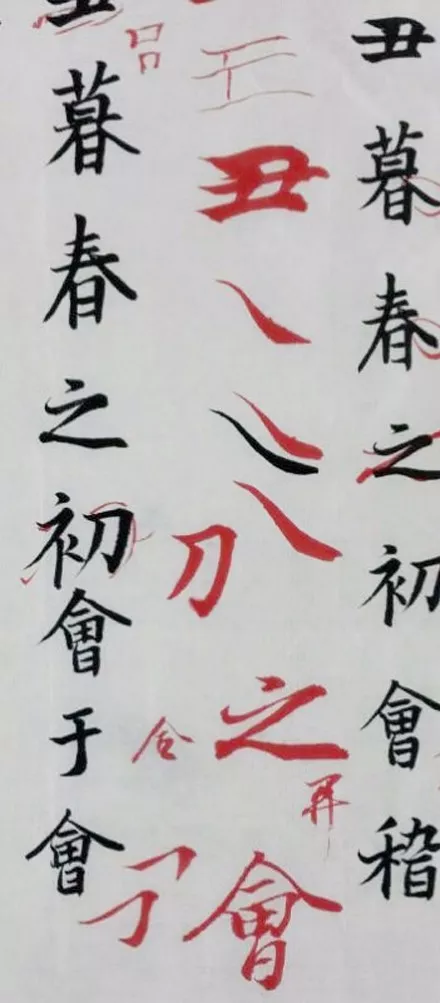 丑暮春之初會稽
丑
刀
之
會
合
丑暮春之初會于會